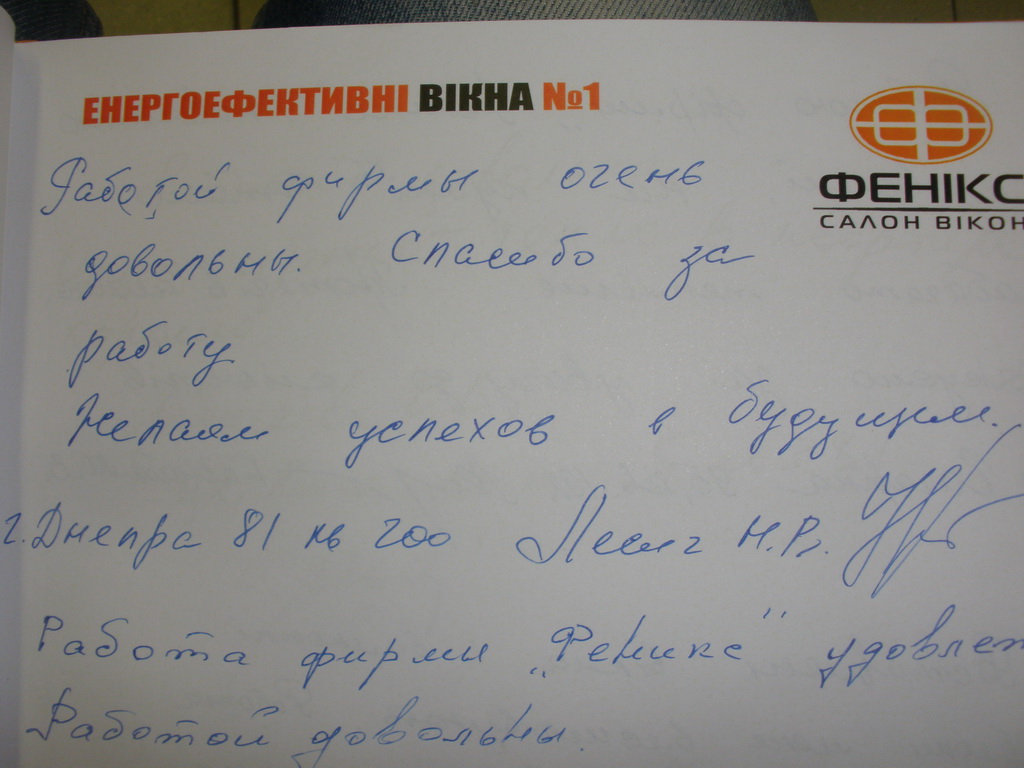 ЕНЕРГОЕФЕКТИВНІ ВІКНА №1
ФЕНІКС
САЛОН ВІКОН
Работой фирмы очень
довольны. Спасибо за
работу
Желаем успехов в будущем.
г. Днепра 81 кв 200
Работа фирмы „Феникс" удовлет
Работой довольны.